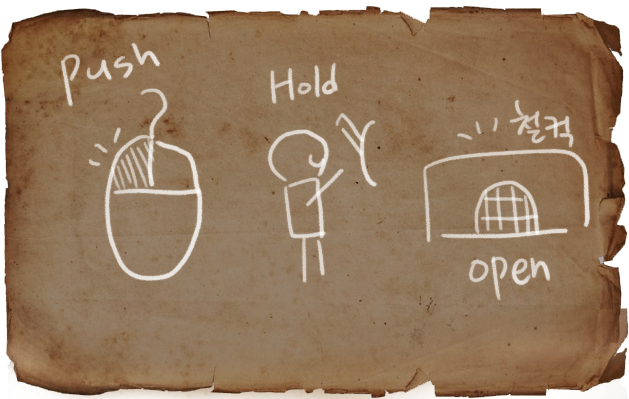 Push
Hold
철컥
open